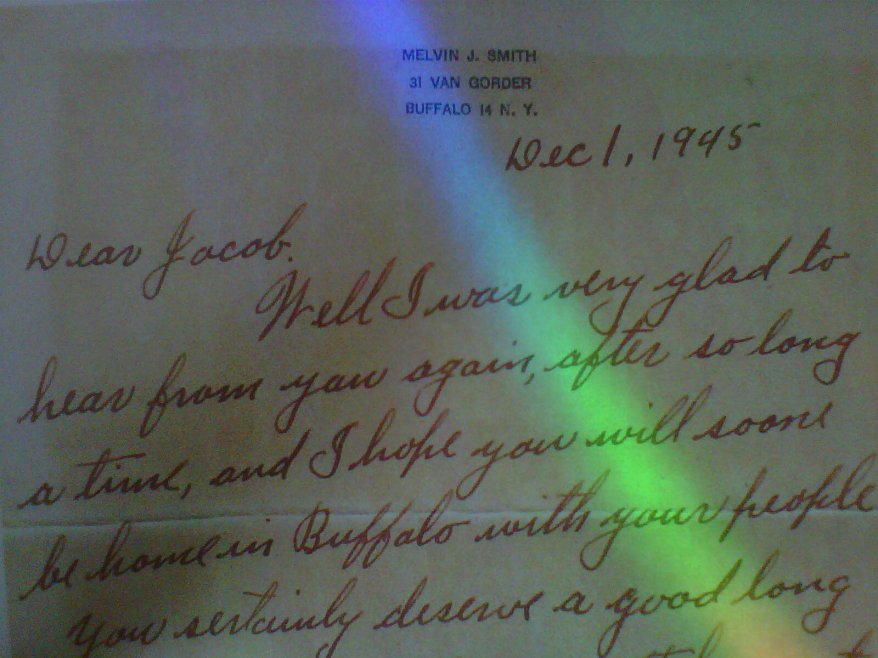 MELVIN J. SMITH
31 VAN GORDER
BUFFALO 14 N. Y.
Dec 1, 1945
Dear Jacob.
Well I was very glad to
hear from you again, after so long
a time, and I hope you will soone
be home in Buffalo with your people
You sertainly deserve a good long